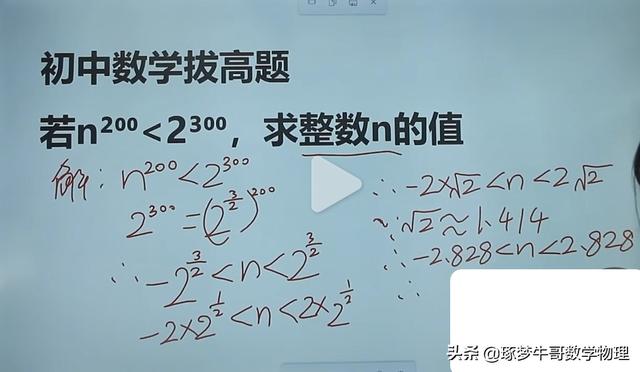 初中数学拔高题
若n²⁰⁰<2³⁰⁰，求整数n的值
解：n²⁰⁰<2³⁰⁰
2³⁰⁰=(2^(3/2))²⁰⁰
∴-2^(3/2)<n<2^(3/2)
-2×2^(1/2)<n<2×2^(1/2)
∴-2×√2<n<2√2
∵√2≈1.414
∴-2.828<n<2.828
∴
头条 @琢梦牛哥数学物理